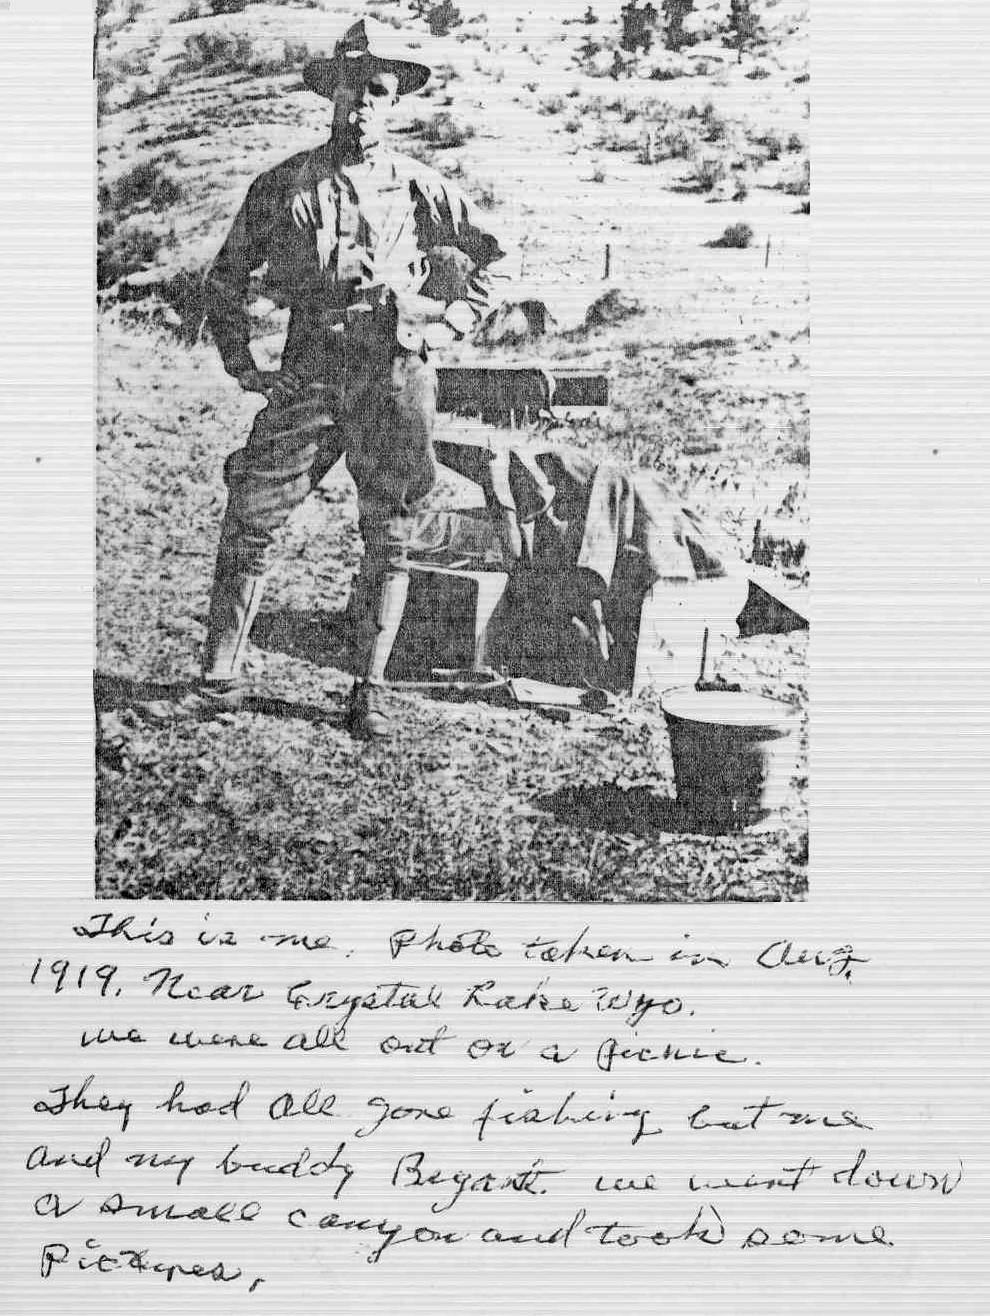 This is me. Photo taken in Aug.
1919. Near Crystal Lake Wyo.
we were all out on a picnic.
They had all gone fishing but me
and my buddy Bryant. we went down
a small canyon and took some
Pictures,